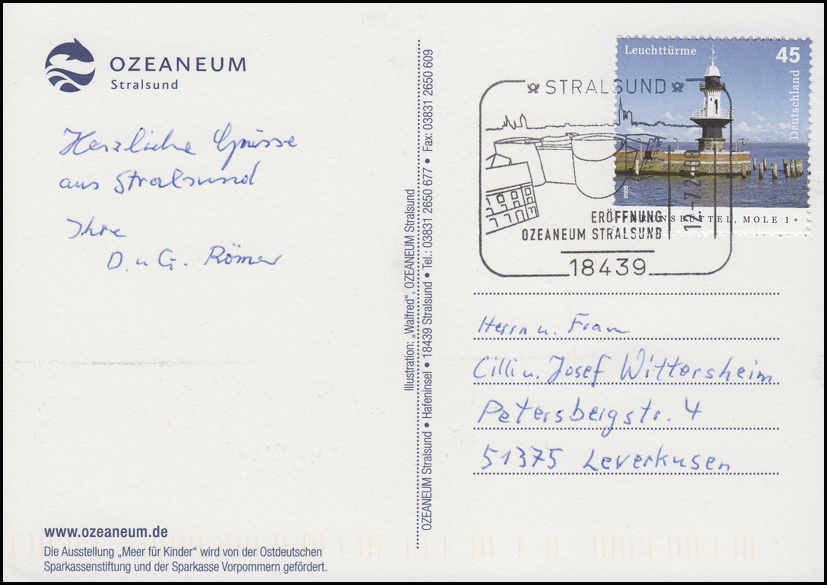 OZEANEUM
Stralsund
Herzliche Grüsse
aus Stralsund
Ihre
D. u G. Römer
www.ozeaneum.de
Die Ausstellung „Meer für Kinder“ wird von der Ostdeutschen
Sparkassenstiftung und der Sparkasse Vorpommern gefördert.
Illustration: „Walfred“, OZEANEUM Stralsund
OZEANEUM Stralsund • Hafeninsel • 18439 Stralsund • Tel.: 03831 2650 677 • Fax: 03831 2650 609
Leuchttürme 45
Deutschland
STRALSUND
ERÖFFNUNG
OZEANEUM STRALSUND
18439
MOLE 1
Herrn u. Frau
Cilli u. Josef Wittersheim
Petersbergstr. 4
51375 Leverkusen